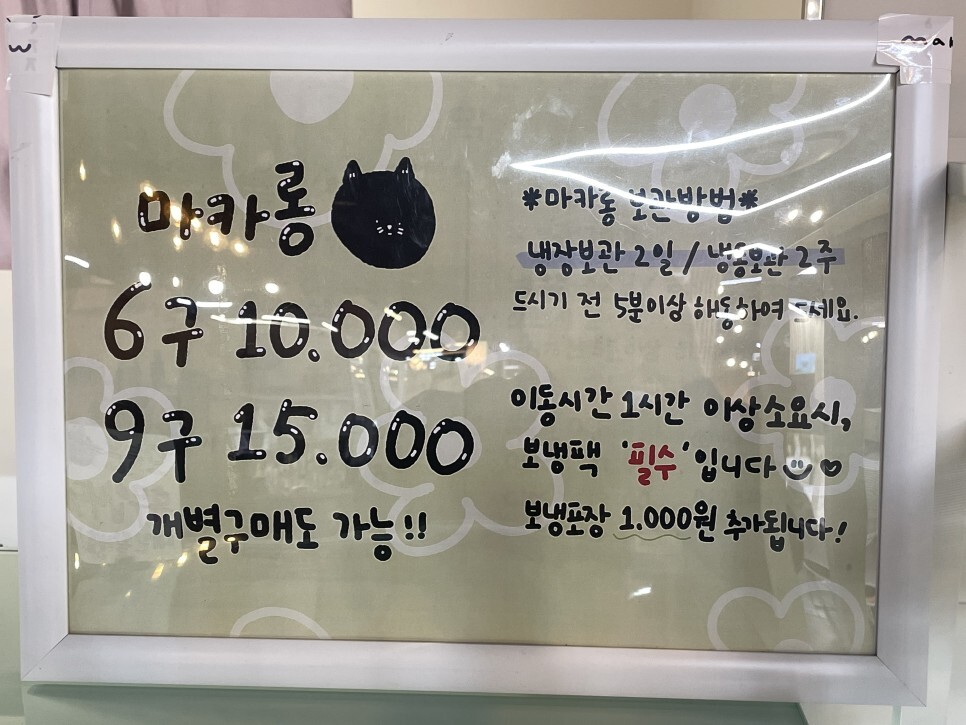 마카롱
6구 10.000
9구 15.000
개별구매도 가능!!
*마카롱 보관방법*
냉장보관 2일 / 냉동보관 2주
드시기 전 5분이상 해동하여 드세요.
이동시간 1시간 이상소요시,
보냉팩 '필수' 입니다
보냉포장 1.000원 추가됩니다!